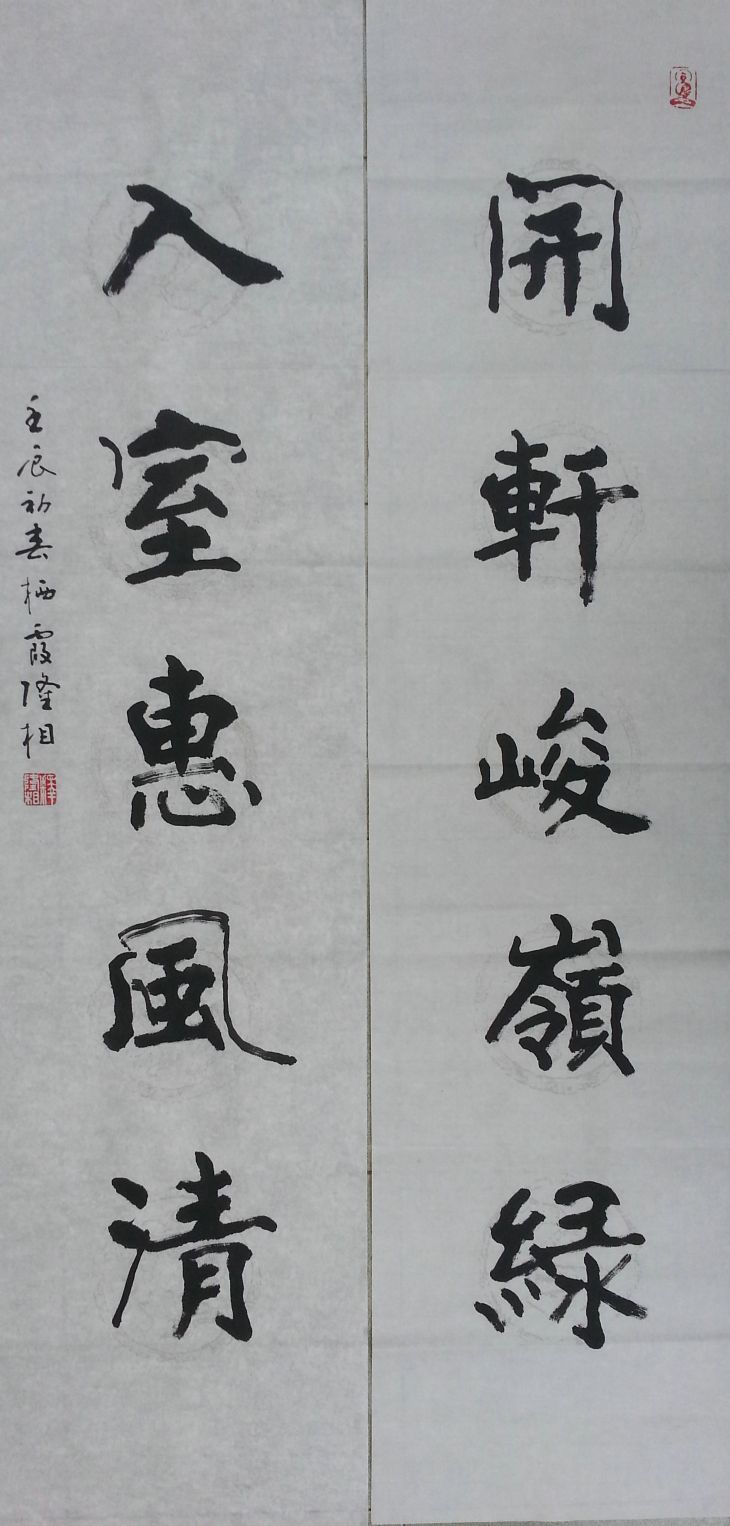 開軒峻嶺綠
入室惠風清
壬辰初春栖霞隆相